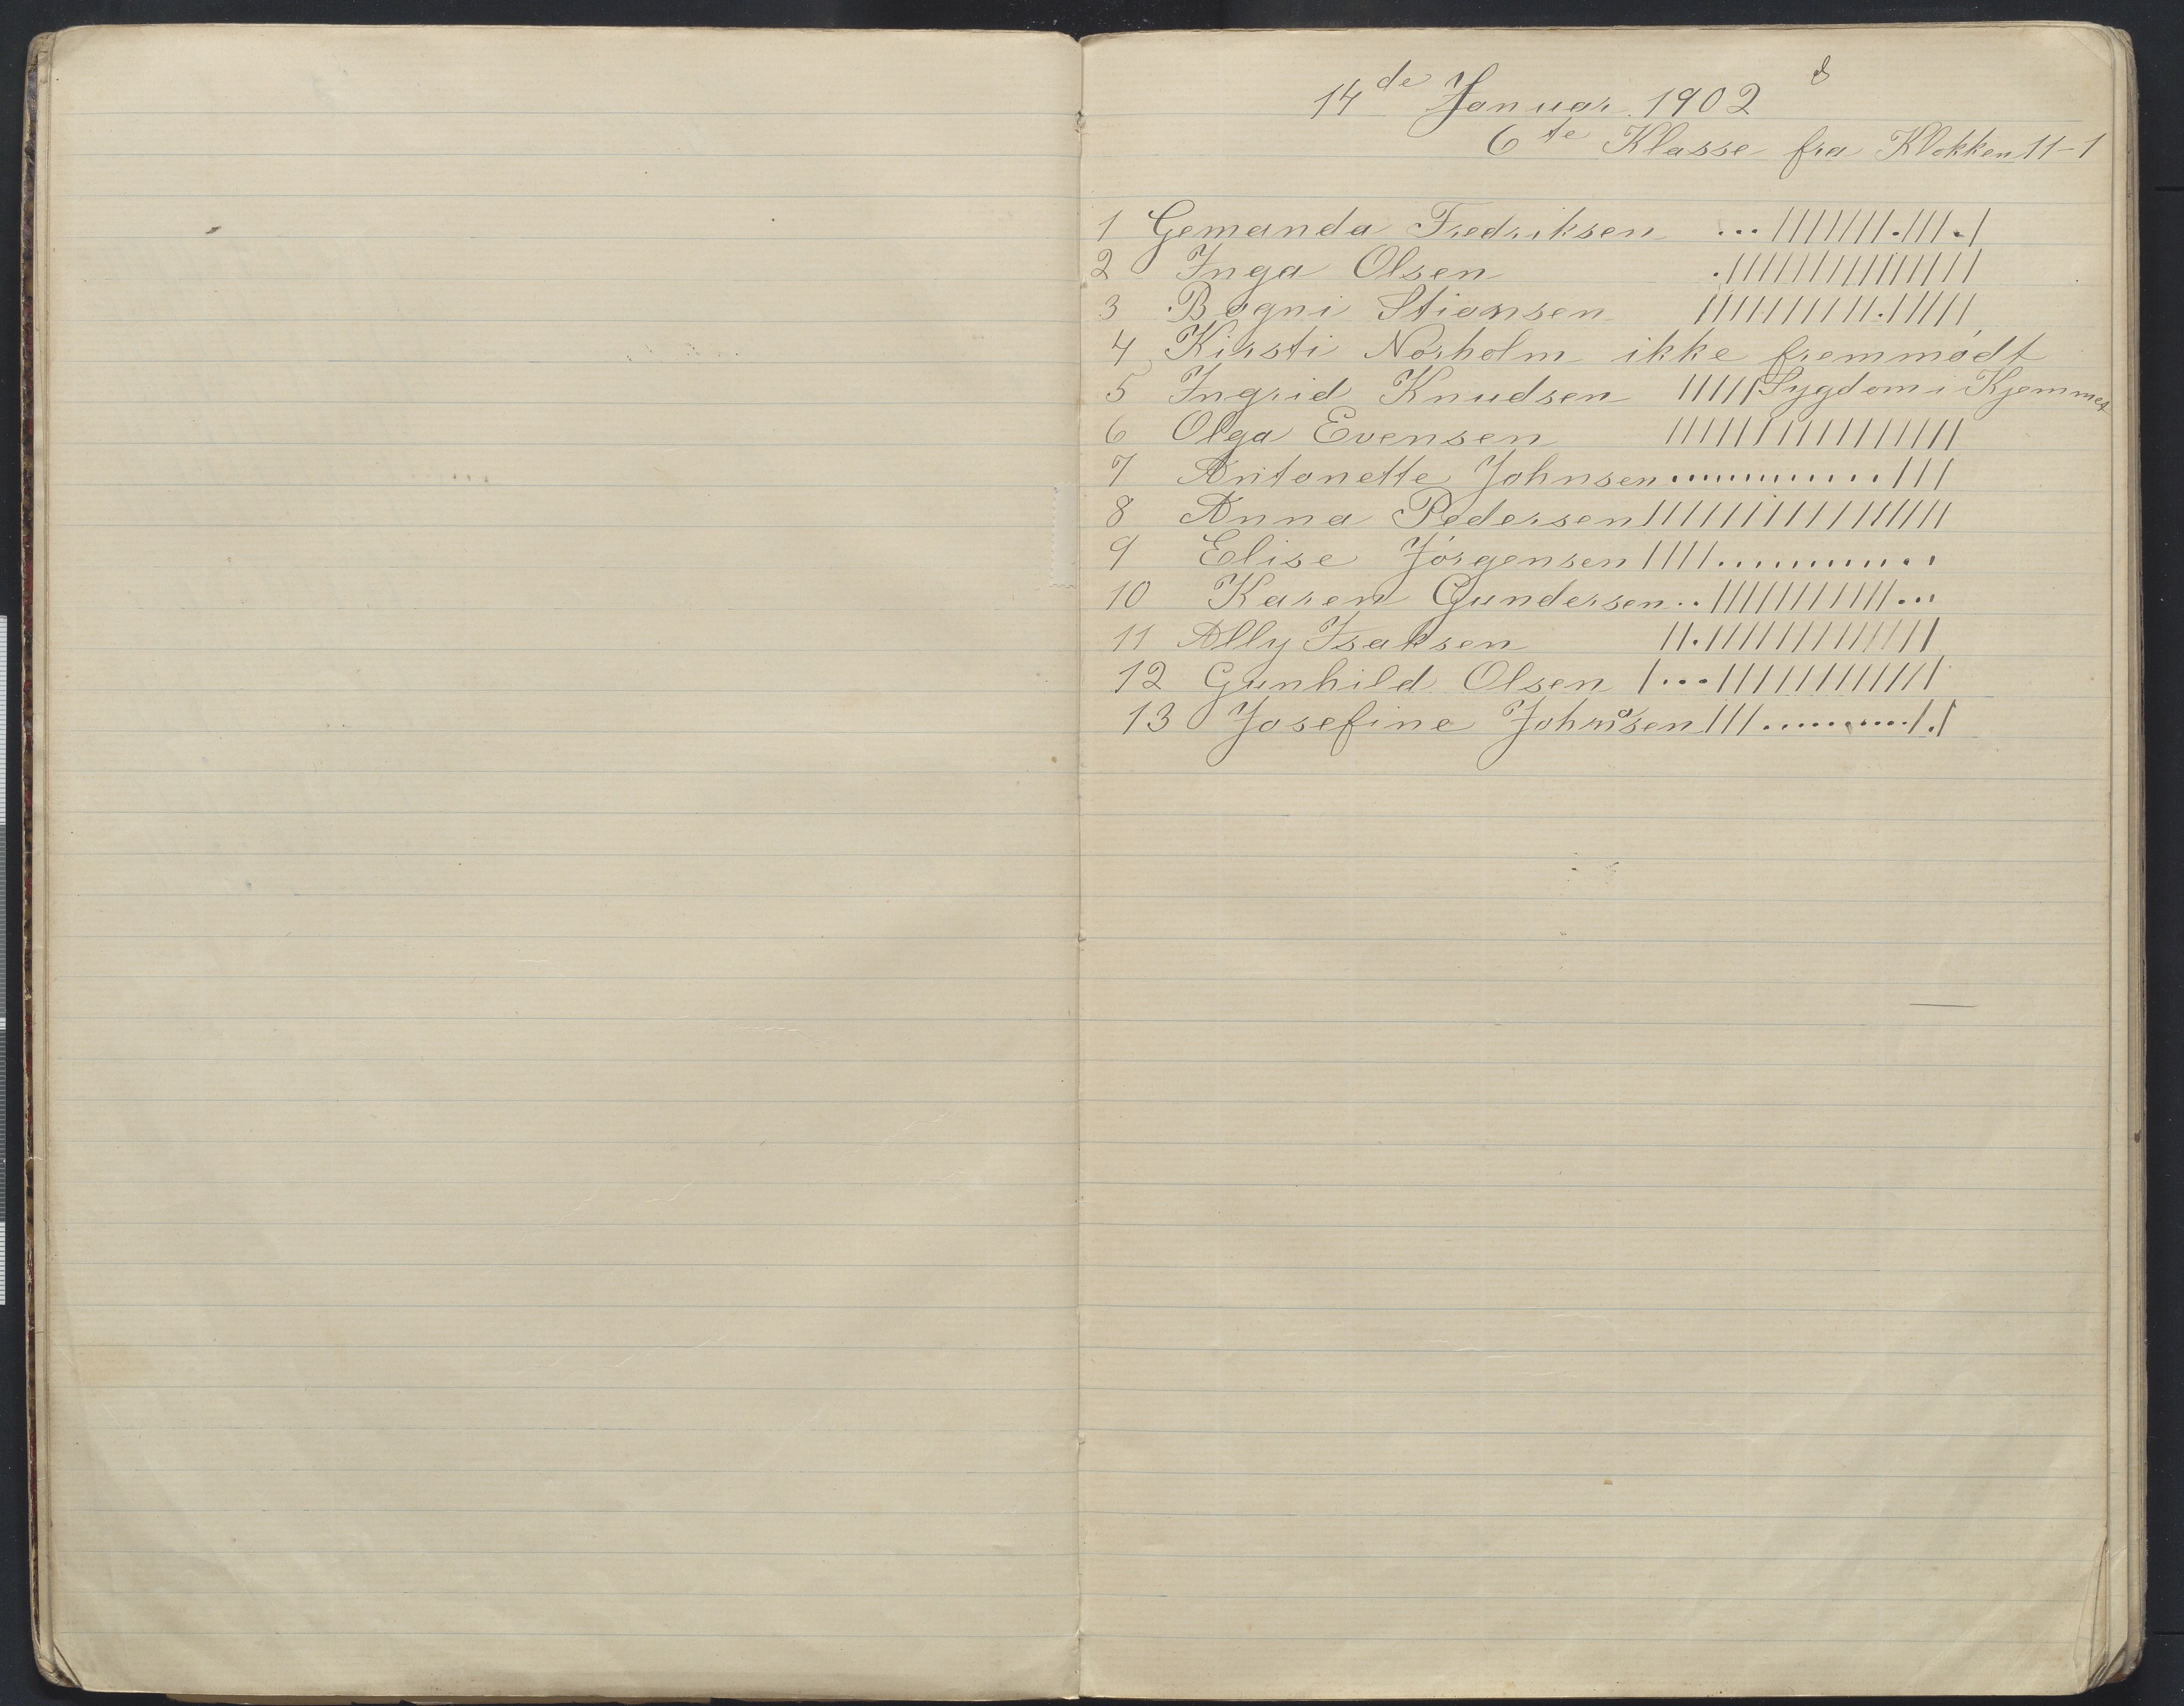 14de Januar 1902
6te Klasse fra Klokken 11-1
1 Gemanda Fredriksen ...|||||||.|||.|
2 Inga Olsen .||||||||||||||
3 Bogni Stiansen ||||||||||.|||||
4 Kirsti Norholm ikke fremmødt
5 Ingrid Knudsen ||||| Sygdom i Hjemmet
6 Olga Evensen ||||||||||||||||
7 Antonette Johnsen .............|||
8 Anna Pedersen |||||||||||||||||
9 Elise Jørgensen ||||.............
10 Karen Gundersen ..|||||||||||...
11 Ally Isaksen ||.|||||||||||||
12 Gunhild Olsen |...||||||||||||
13 Josefine Johnsen |||...........|.|